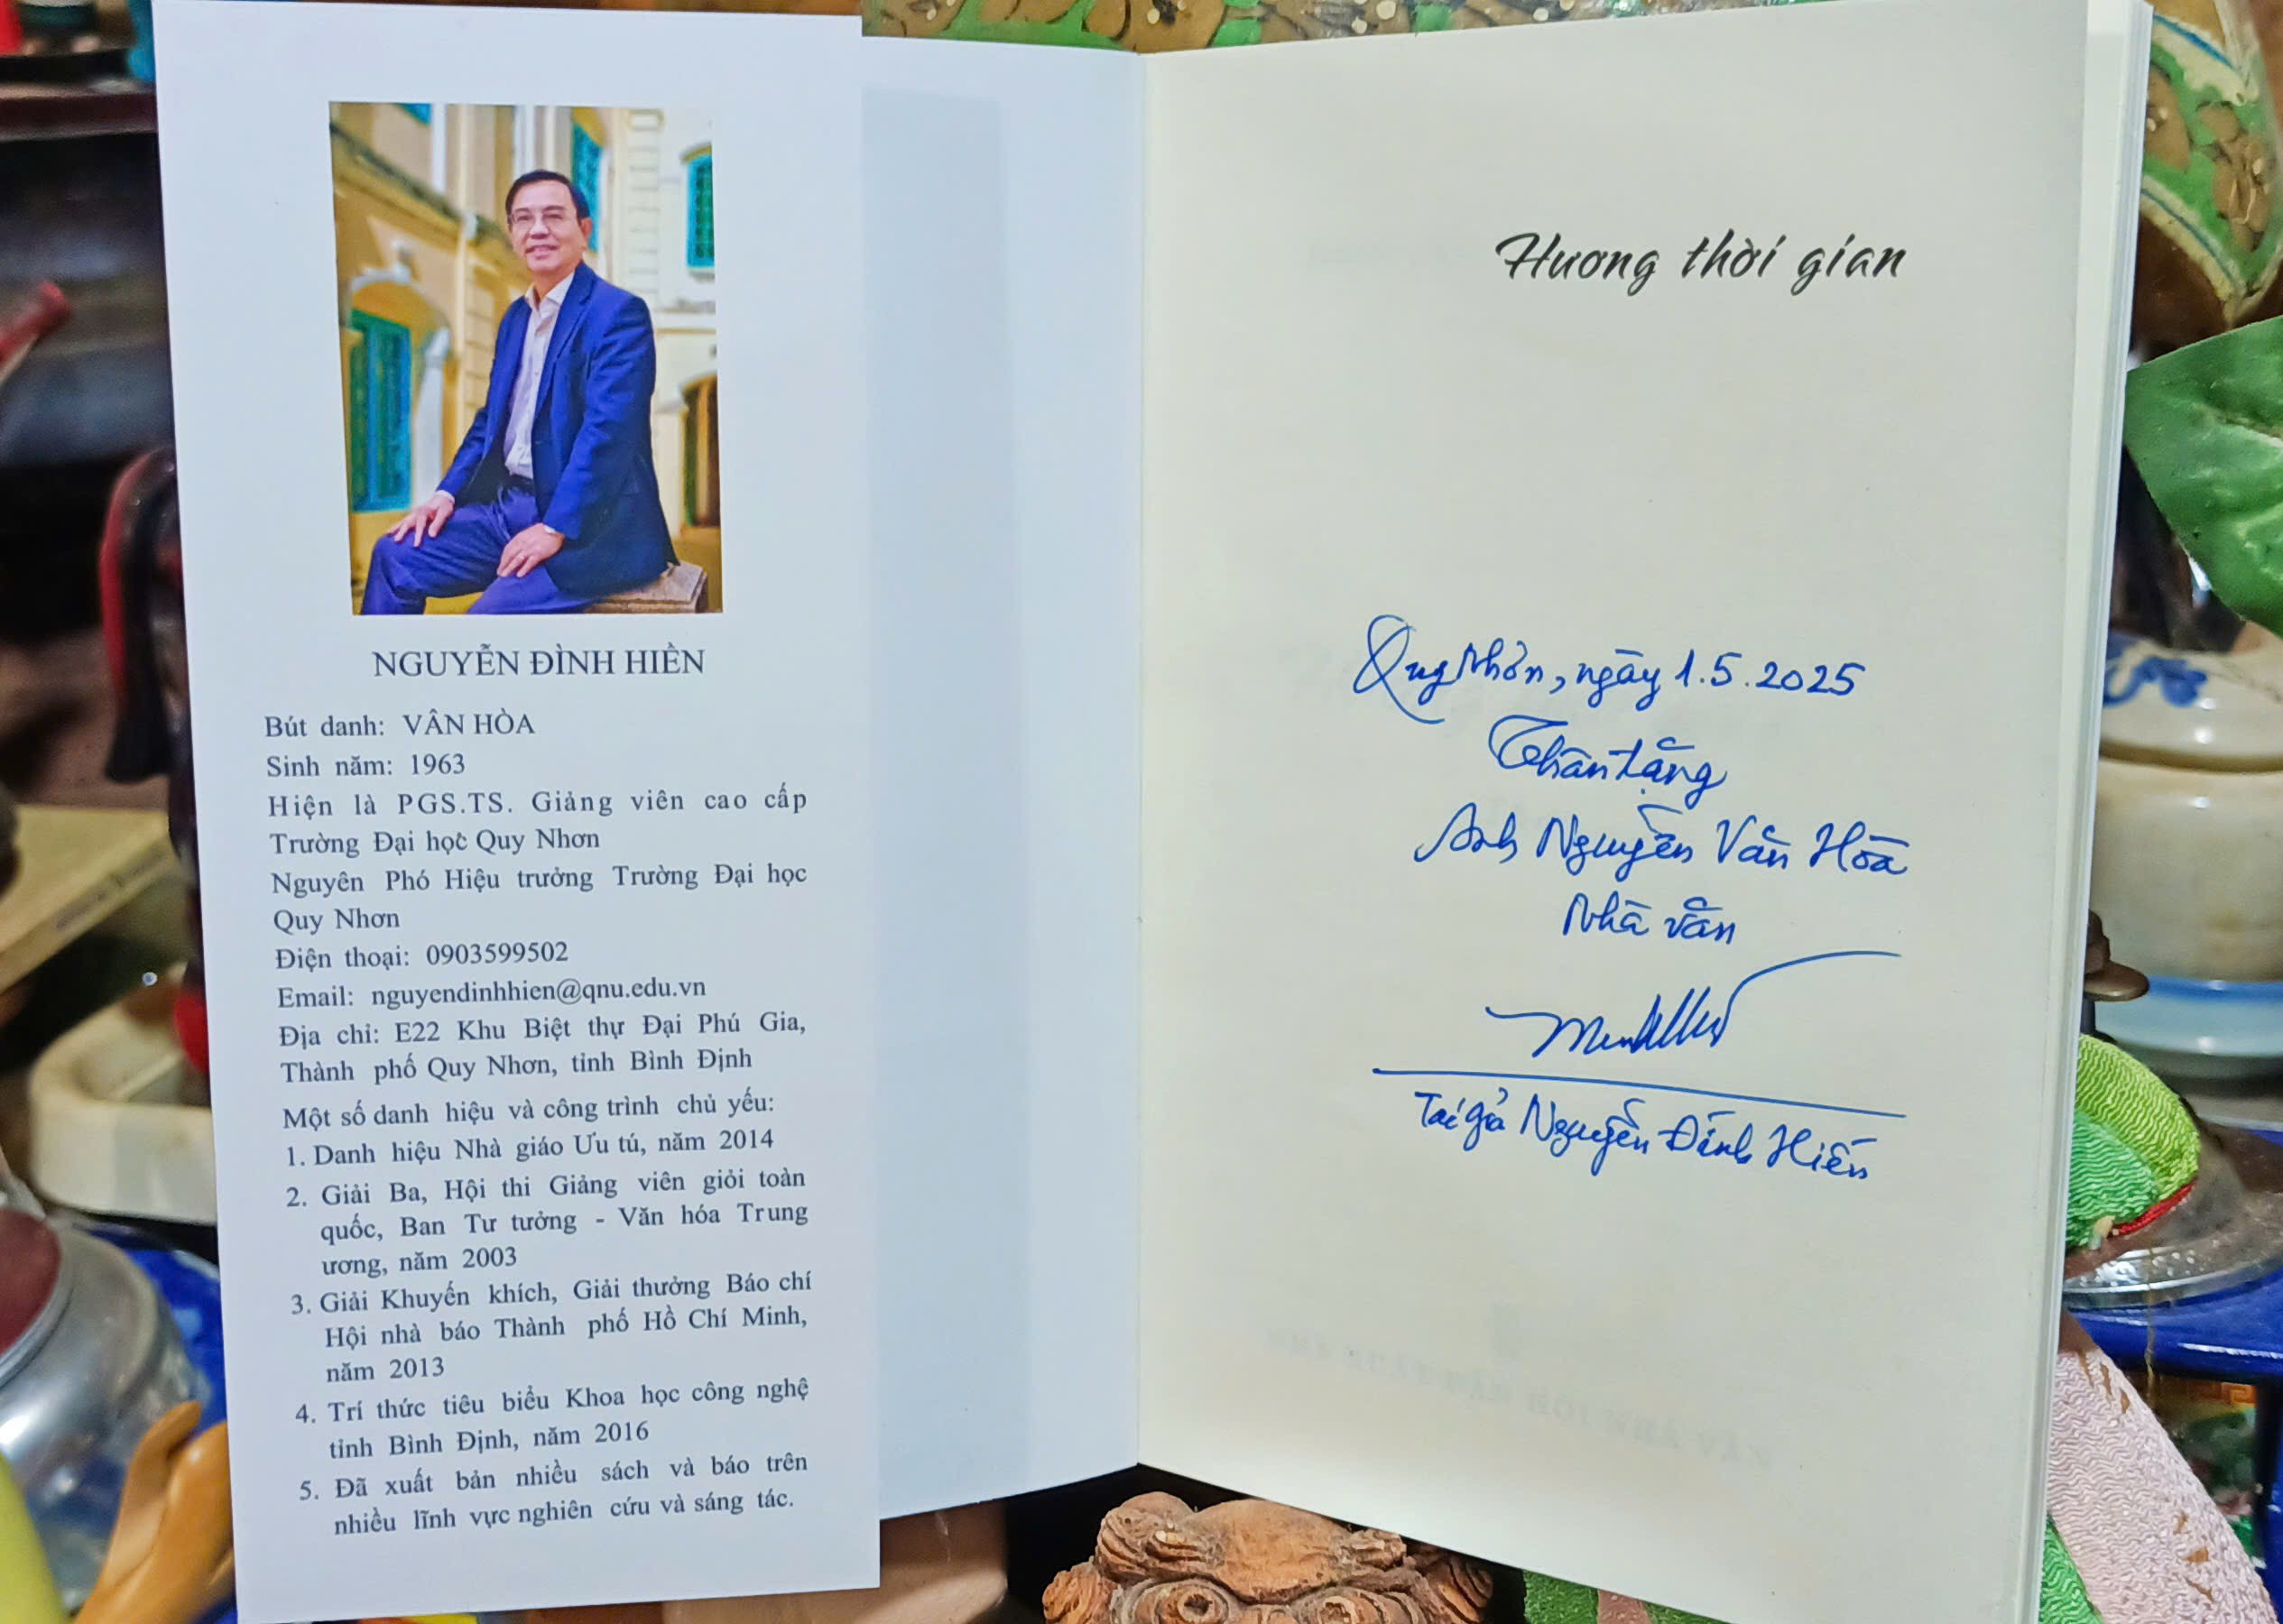 NGUYỄN ĐÌNH HIỀN
Bút danh: VÂN HÒA
Sinh năm: 1963
Hiện là PGS.TS. Giảng viên cao cấp
Trường Đại học Quy Nhơn
Nguyên Phó Hiệu trưởng Trường Đại học
Quy Nhơn
Điện thoại: 0903599502
Email: nguyendinhhien@qnu.edu.vn
Địa chỉ: E22 Khu Biệt thự Đại Phú Gia,
Thành phố Quy Nhơn, tỉnh Bình Định
Một số danh hiệu và công trình chủ yếu:
1. Danh hiệu Nhà giáo Ưu tú, năm 2014
2. Giải Ba, Hội thi Giảng viên giỏi toàn
quốc, Ban Tư tưởng - Văn hóa Trung
ương, năm 2003
3. Giải Khuyến khích, Giải thưởng Báo chí
Hội nhà báo Thành phố Hồ Chí Minh,
năm 2013
4. Trí thức tiêu biểu Khoa học công nghệ
tỉnh Bình Định, năm 2016
5. Đã xuất bản nhiều sách và báo trên
nhiều lĩnh vực nghiên cứu và sáng tác.
Hương thời gian
Quy Nhơn, ngày 1.5.2025
Thân tặng
Anh Nguyễn Văn Hòa
Nhà văn
Tác giả Nguyễn Đình Hiền